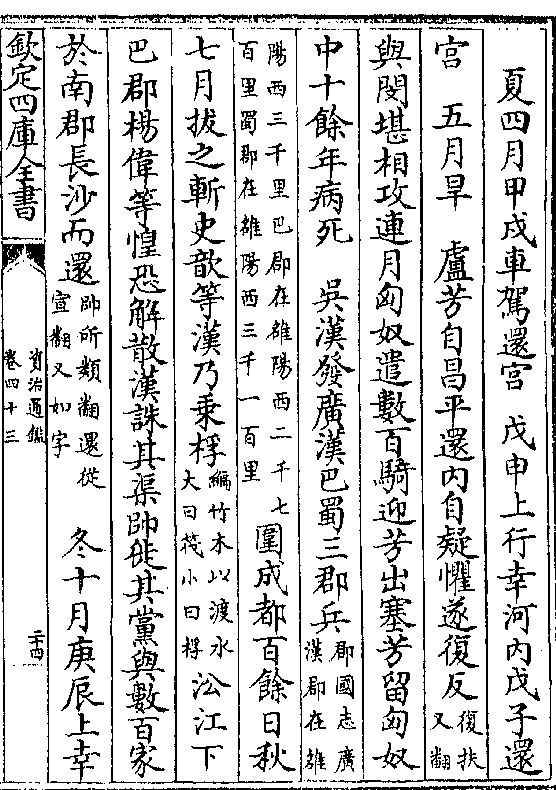 夏四月甲戌車駕還宫　戊申上行幸河内戊子還
宫　五月旱　盧芳自昌平還内自疑懼遂復反復扶又翻
與閔堪相攻連月匈奴遣數百騎迎芳出塞芳留匈奴
中十餘年病死　吳漢發廣漢巴蜀三郡兵郡國志廣漢郡在雒
陽西三千里巴郡在雒陽西二千七百里蜀郡在雒陽西三千一百里圍成都百餘日秋
七月拔之斬史歆等漢乃乗桴編竹木以渡水大曰筏小曰桴㳂江下
巴郡楊偉等惶恐解散漢誅其渠帥徙其黨與數百家
於南郡長沙而還帥所類翻還從宣翻又如字　冬十月庚辰上幸
欽定四庫全書
資治通鑑
卷四十三
二十四